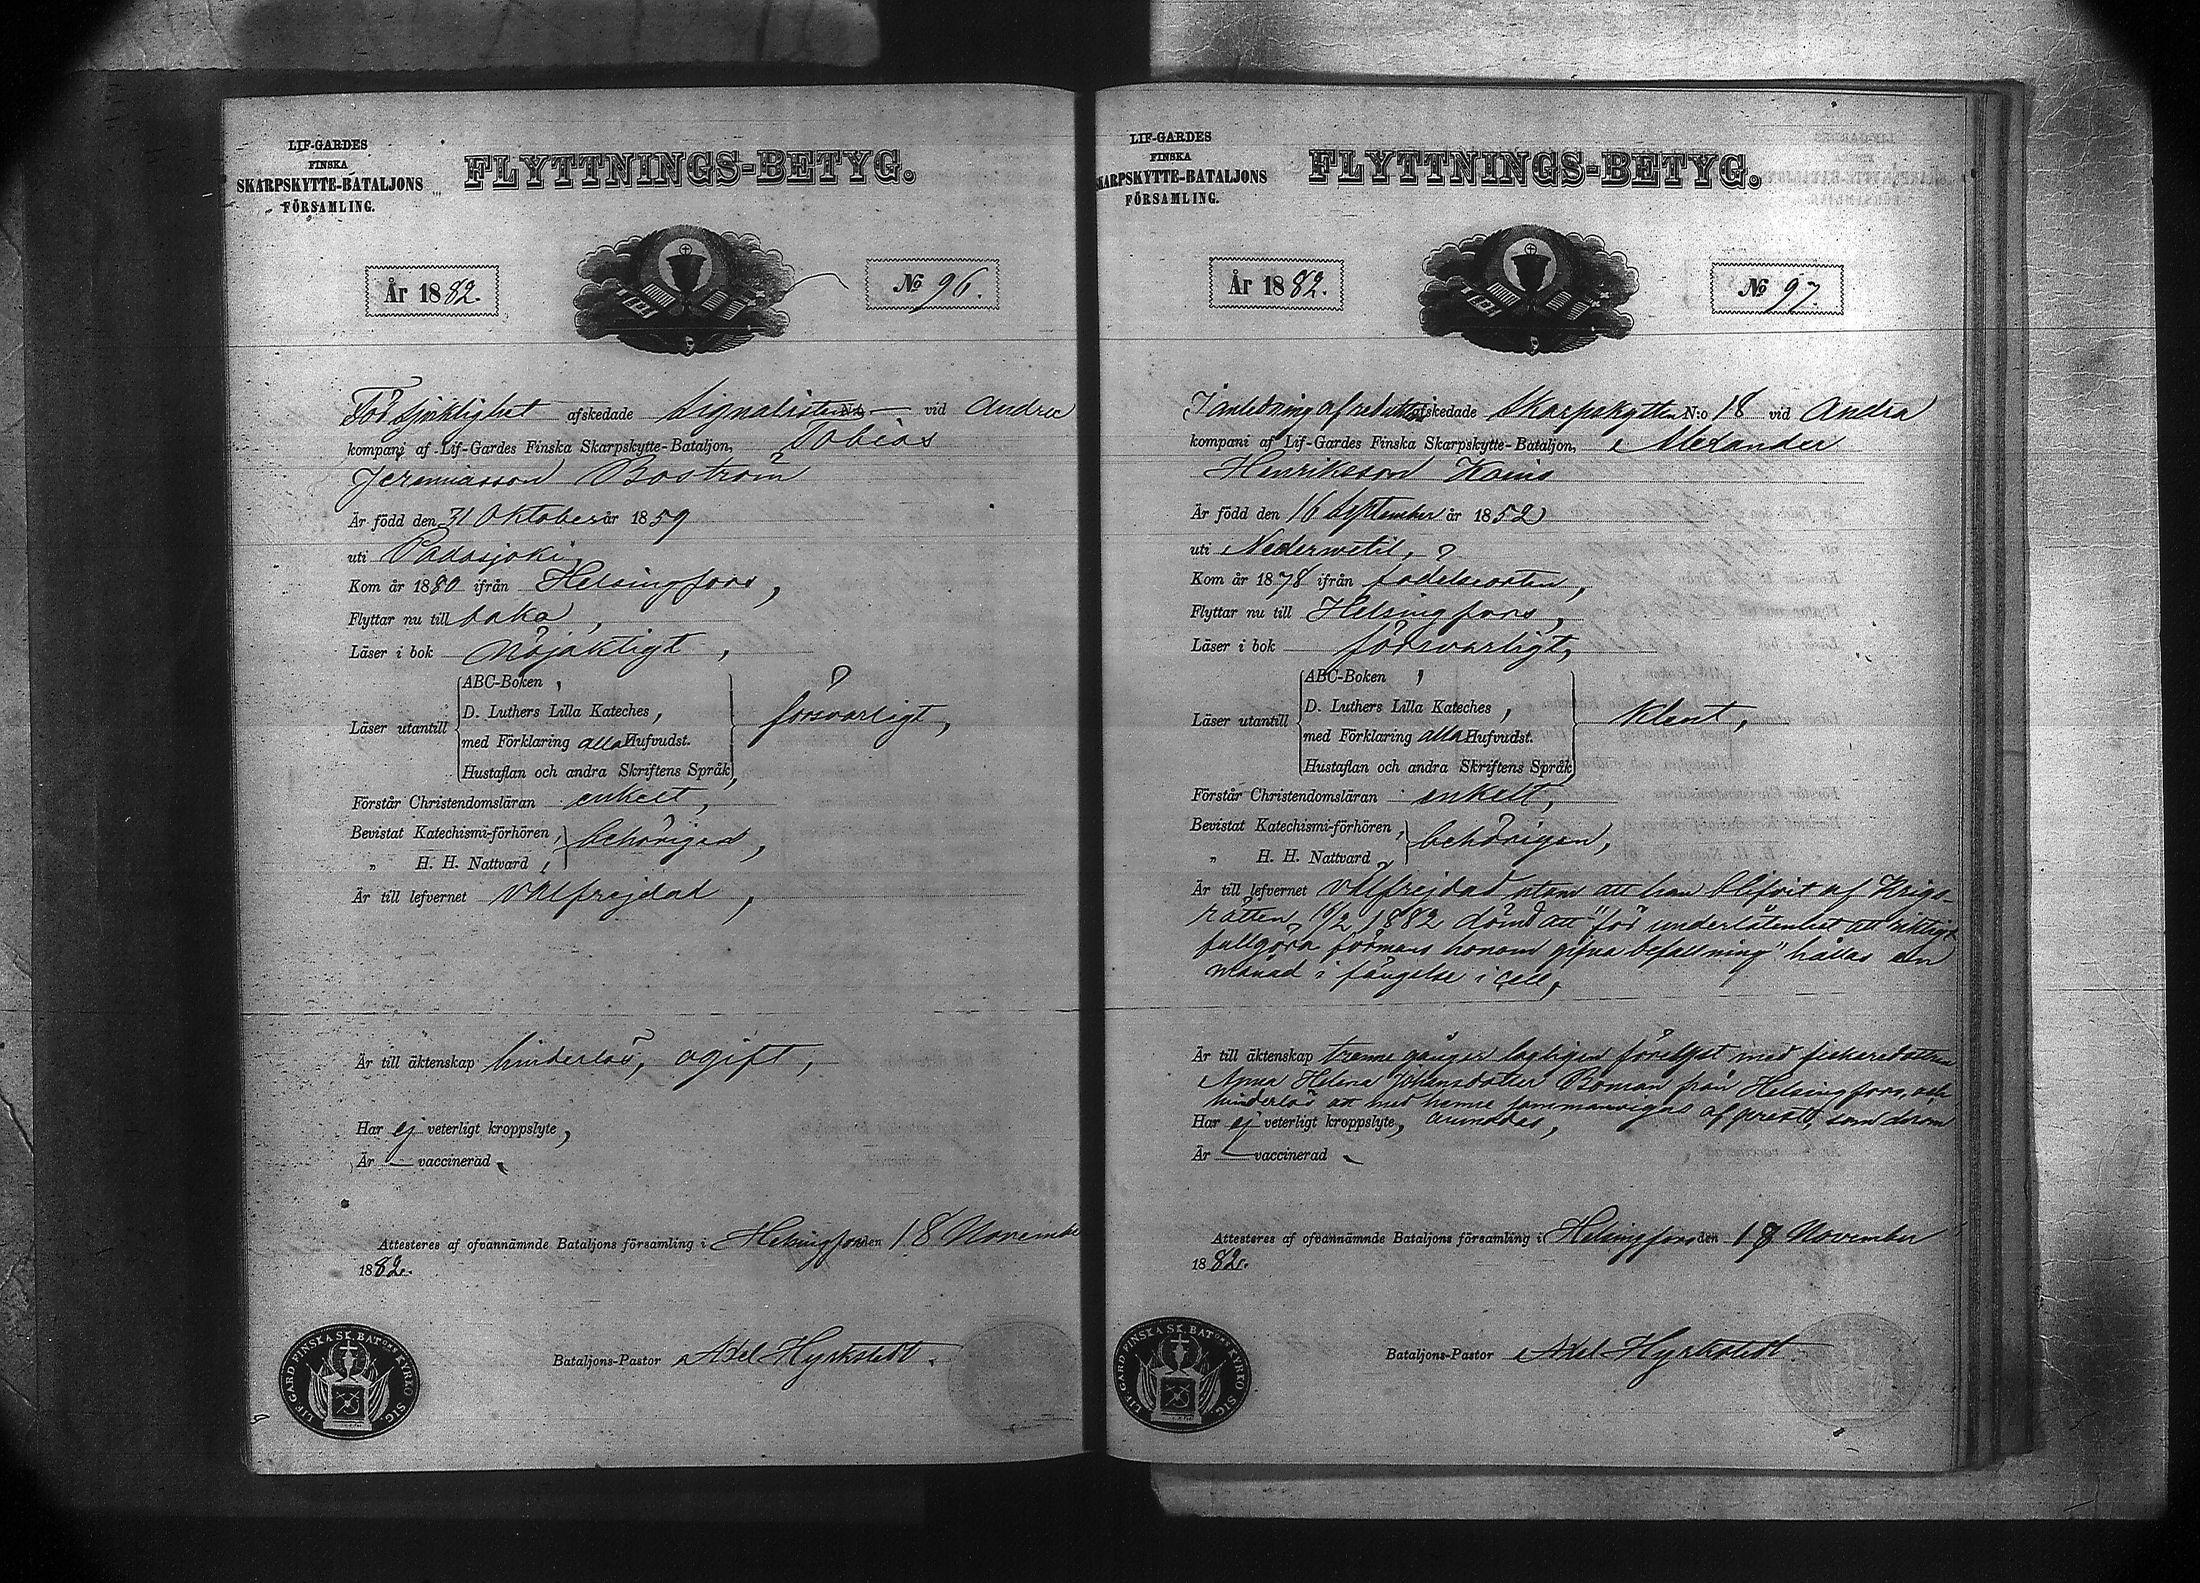 LIF-GARDES
FINSKA
SKARPSKYTTE-BATALJONS
FÖRSAMLING.
FLYTTNINGS-BETYG.
År 1882.
No 96.
För sjuklighet afskedade Signalisten N:o — vid Andra
kompani af Lif-Gardes Finska Skarpskytte-Bataljon, Tobias
Jeremiasson Boström
Är född den 31 Oktober år 1859
uti Padasjoki,
Kom år 1880 ifrån Helsingfors,
Flyttar nu till baka,
Läser i bok Nöjaktigt,
Läser utantill
ABC-Boken,
D. Luthers Lilla Kateches,
med Förklaring alla Hufvudst.
Hustaflan och andra Skriftens Språk,
försvarligt,
Förstår Christendomsläran enkelt,
Bevistat Katechismi-förhören,
„ H. H. Nattvard,
behörigen,
Är till lefvernet Välfrejdad,
Är till äktenskap hinderlös, ogift,
Har ej veterligt kroppslyte,
Är — vaccinerad.
Attesteres af ofvannämnde Bataljons församling i Helsingfors den 18 November
1882.
Bataljons-Pastor Axel Hyrkstedt.
LIF GARD FINSKA SK. BAT:ONS KYRKO SIG.
LIF-GARDES
FINSKA
SKARPSKYTTE-BATALJONS
FÖRSAMLING.
FLYTTNINGS-BETYG.
År 1882.
No 97.
I anledning af afskedade Skarpskytten N:o 18 vid Andra
kompani af Lif-Gardes Finska Skarpskytte-Bataljon, Alexander
Henriksson
Är född den 16 September år 1852
uti Nedervetil,
Kom år 1878 ifrån födelseorten,
Flyttar nu till Helsingfors,
Läser i bok försvarligt,
Läser utantill
ABC-Boken,
D. Luthers Lilla Kateches,
med Förklaring alla Hufvudst.
Hustaflan och andra Skriftens Språk
klent,
Förstår Christendomsläran enkelt,
Bevistat Katechismi-förhören,
„ H. H. Nattvard,
behörigen,
Är till lefvernet Välfrejdad utom att han blifvit af Krigs-
rätten /2 1882 dömd att "för underlåtenhet att riktigt
fullgöra förmans honom gifna befallning" hållas en
månad i fängelse i cell,
Är till äktenskap trenne gånger lagligen förelyst med fiskaredottren
Anna Helena Johansdotter Boman från Helsingfors, och
hinderlös att med henne sammanvigas af prest, som derom
Har ej veterligt kroppslyte, anmodas,
Är — vaccinerad.
Attesteres af ofvannämnde Bataljons församling i Helsingfors den 18 November
1882.
Bataljons-Pastor Axel Hyrkstedt.
LIF GARD FINSKA SK. BAT:ONS KYRKO SIG.